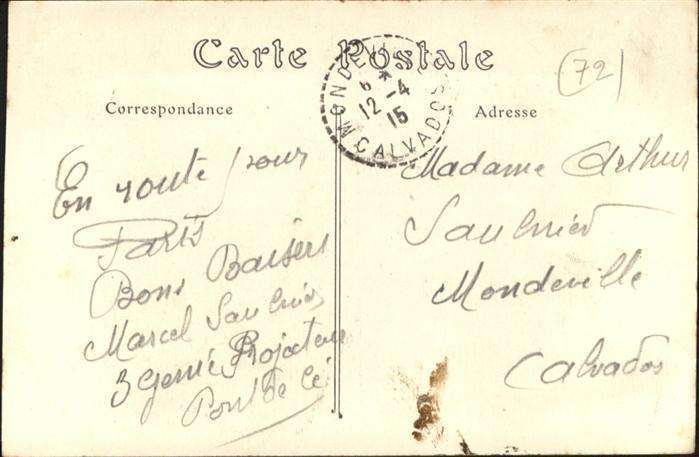 Carte Postale
(72)
Correspondance
En route pour
Paris
Bons Baisers
Marcel Saulnier
3 Genie Projecteur
Pont de Cé
MONDEVILLE
6 *
12 - 4
15
CALVADOS
Adresse
Madame Arthur
Saulnier
Mondeville
Calvados